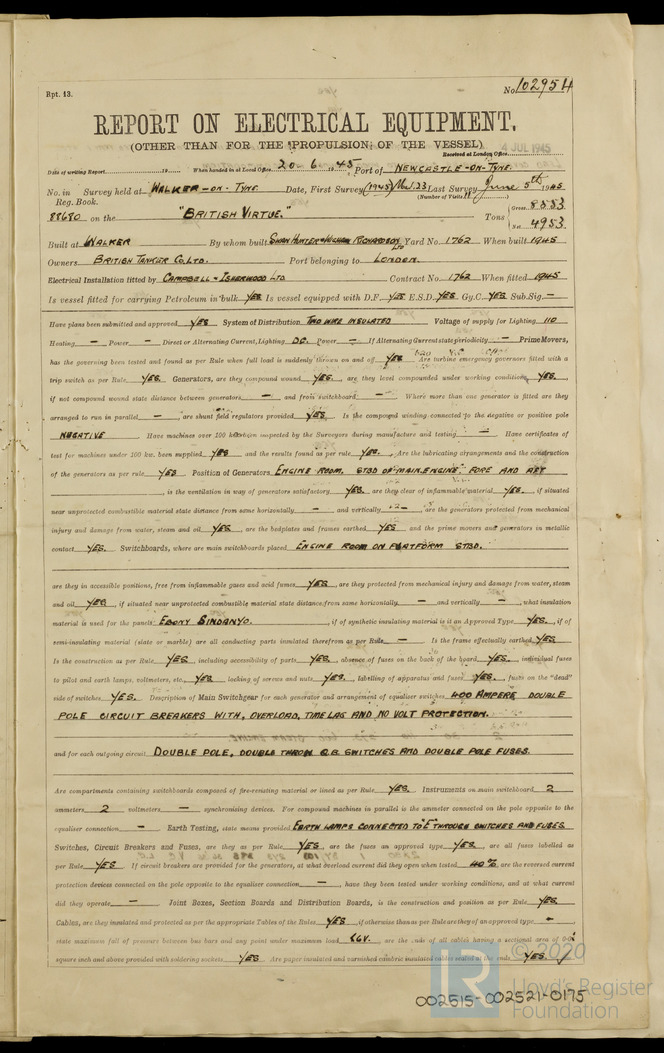 Rpt. 13.
No. 102954
REPORT ON ELECTRICAL EQUIPMENT.
(OTHER THAN FOR THE PROPULSION OF THE VESSEL)
4 JUL 1945
Received at London Office
Date of writing Report 19 When handed in at Local Office 20.6.1945 Port of NEWCASTLE-ON-TYNE.
No. in Survey held at WALKER-ON-TYNE. Date, First Survey (1945) Last Survey June 5th 1945
Reg. Book. (Number of Visits)
88680 on the "BRITISH VIRTUE." Tons Gross 8553
Net 4953
Built at WALKER By whom built SWAN HUNTER & WIGHAM RICHARDSON LTD Yard No. 1762 When built 1945
Owners BRITISH TANKER CO. LTD. Port belonging to LONDON.
Electrical Installation fitted by CAMPBELL & ISHERWOOD LTD. Contract No. 1762 When fitted 1945
Is vessel fitted for carrying Petroleum in bulk YES Is vessel equipped with D.F. YES E.S.D. YES Gy.C. YES Sub.Sig. —
Have plans been submitted and approved YES System of Distribution TWO WIRE INSULATED Voltage of supply for Lighting 110
Heating — Power — Direct or Alternating Current, Lighting D.C. Power — If Alternating Current state periodicity — Prime Movers,
has the governing been tested and found as per Rule when full load is suddenly thrown on and off YES Are turbine emergency governors fitted with a
trip switch as per Rule YES. Generators, are they compound wound YES. are they level compounded under working conditions YES.
if not compound wound state distance between generators — and from switchboard — Where more than one generator is fitted are they
arranged to run in parallel — , are shunt field regulators provided YES Is the compound winding connected to the negative or positive pole
NEGATIVE Have machines over 100 kw been inspected by the Surveyors during manufacture and testing — Have certificates of
test for machines under 100 kw. been supplied YES and the results found as per rule YES. Are the lubricating arrangements and the construction
of the generators as per rule YES Position of Generators ENGINE ROOM, STBD OF "MAIN ENGINE" FORE AND AFT
, is the ventilation in way of generators satisfactory YES. are they clear of inflammable material YES. if situated
near unprotected combustible material state distance from same horizontally — and vertically — are the generators protected from mechanical
injury and damage from water, steam and oil YES. are the bedplates and frames earthed YES and the prime movers and generators in metallic
contact YES. Switchboards, where are main switchboards placed ENGINE ROOM ON PLATFORM STBD.
are they in accessible positions, free from inflammable gases and acid fumes YES are they protected from mechanical injury and damage from water, steam
and oil YES if situated near unprotected combustible material state distance from same horizontally — and vertically — , what insulation
material is used for the panels EBONY SINDANYO. , if of synthetic insulating material is it an Approved Type YES, if of
semi-insulating material (slate or marble) are all conducting parts insulated therefrom as per Rule — Is the frame effectually earthed YES
Is the construction as per Rule YES, including accessibility of parts YES, absence of fuses on the back of the board YES. individual fuses
to pilot and earth lamps, voltmeters, etc. YES locking of screws and nuts YES. labelling of apparatus and fuses YES. fuses on the "dead"
side of switches YES. Description of Main Switchgear for each generator and arrangement of equaliser switches 400 AMPERE DOUBLE
POLE CIRCUIT BREAKERS WITH, OVERLOAD, TIME LAG AND NO VOLT PROTECTION.
and for each outgoing circuit DOUBLE POLE, DOUBLE THROW Q.B. SWITCHES AND DOUBLE POLE FUSES.
Are compartments containing switchboards composed of fire-resisting material or lined as per Rule YES. Instruments on main switchboard 2
ammeters 2 voltmeters — synchronising devices. For compound machines in parallel is the ammeter connected to the pole opposite to the
equaliser connection — Earth Testing, state means provided EARTH LAMPS CONNECTED TO "E" THROUGH SWITCHES AND FUSES
Switches, Circuit Breakers and Fuses, are they as per Rule YES are the fuses an approved type YES. are all fuses labelled as
per Rule YES If circuit breakers are provided for the generators, at what overload current did they open when tested 40% are the reversed current
protection devices connected on the pole opposite to the equaliser connection — , have they been tested under working conditions, and at what current
did they operate — Joint Boxes, Section Boards and Distribution Boards, is the construction and position as per Rule YES
Cables, are they insulated and protected as per the appropriate Tables of the Rules YES if otherwise than as per Rule are they of an approved type —
state maximum fall of pressure between bus bars and any point under maximum load are the ends of all cables having a sectional area of
square inch and above provided with soldering sockets YES Are paper insulated and varnished cambric insulated cables sealed at the ends YES.
© 2020
LR Lloyd's Register
Foundation
002515-002521-0175